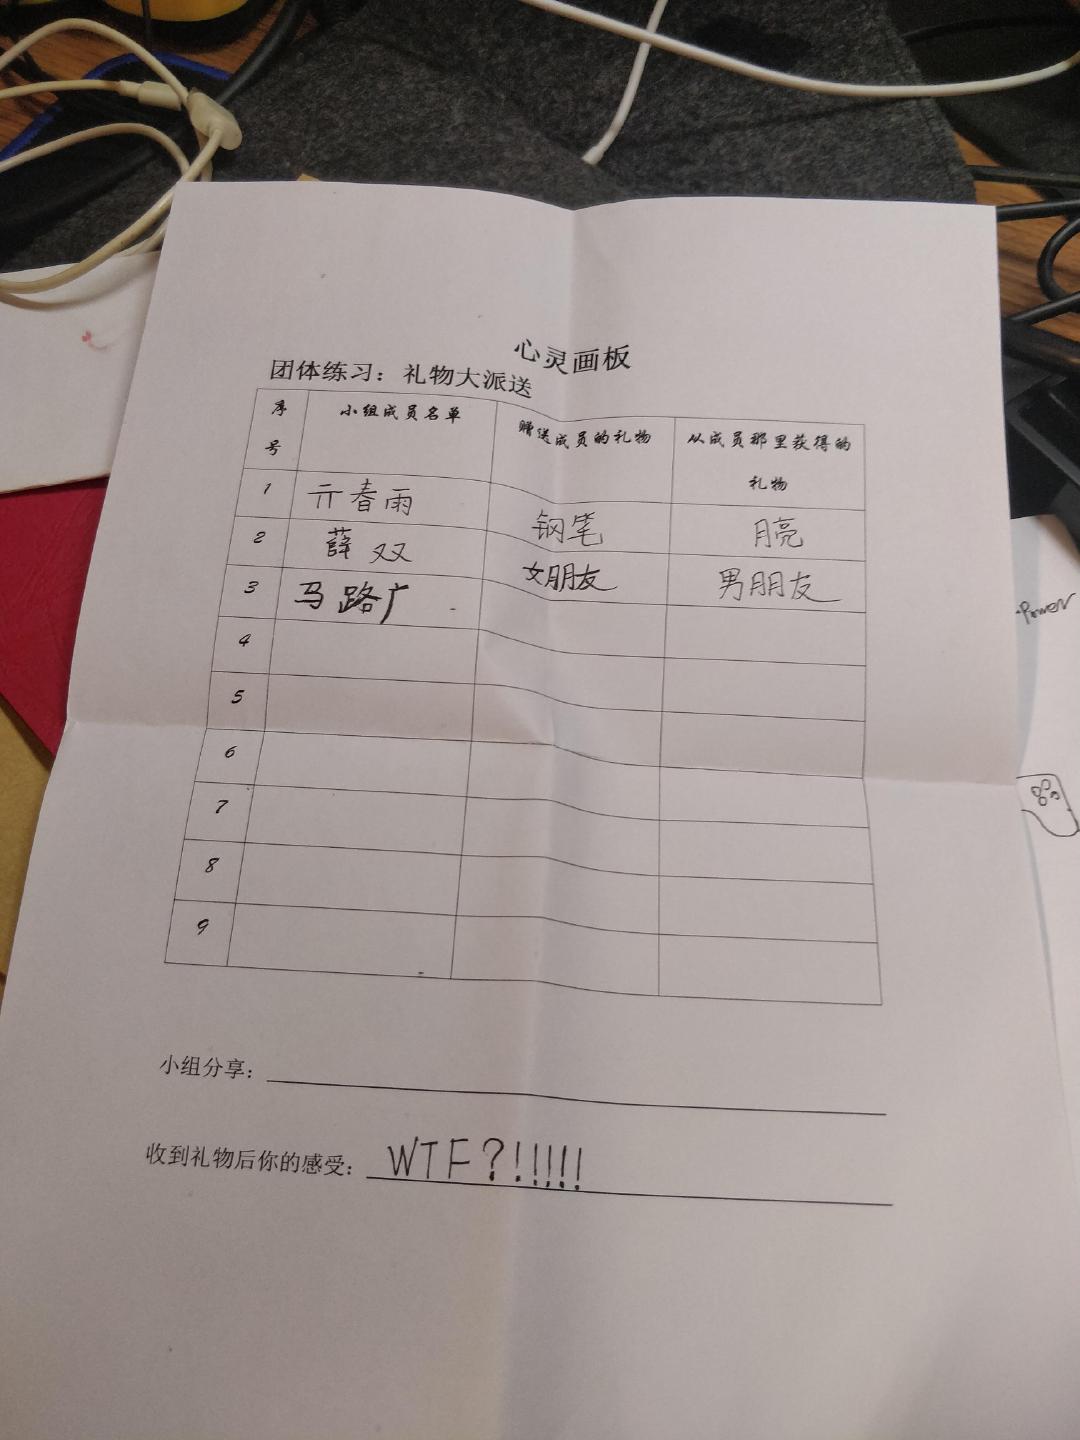 心灵画板
团体练习：礼物大派送
序号 小组成员名单 赠送成员的礼物 从成员那里获得的礼物
1 亓春雨 钢笔 月亮
2 薛双 女朋友 男朋友
3 马路广
4
5
6
7
8
9
小组分享：
收到礼物后你的感受：WTF?!!!!!
Power